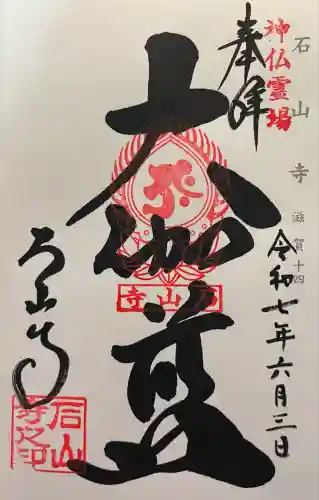 奉拝
神仏霊場
石山寺
滋賀十四
令和七年六月三日
大伽藍
石山寺
石山寺